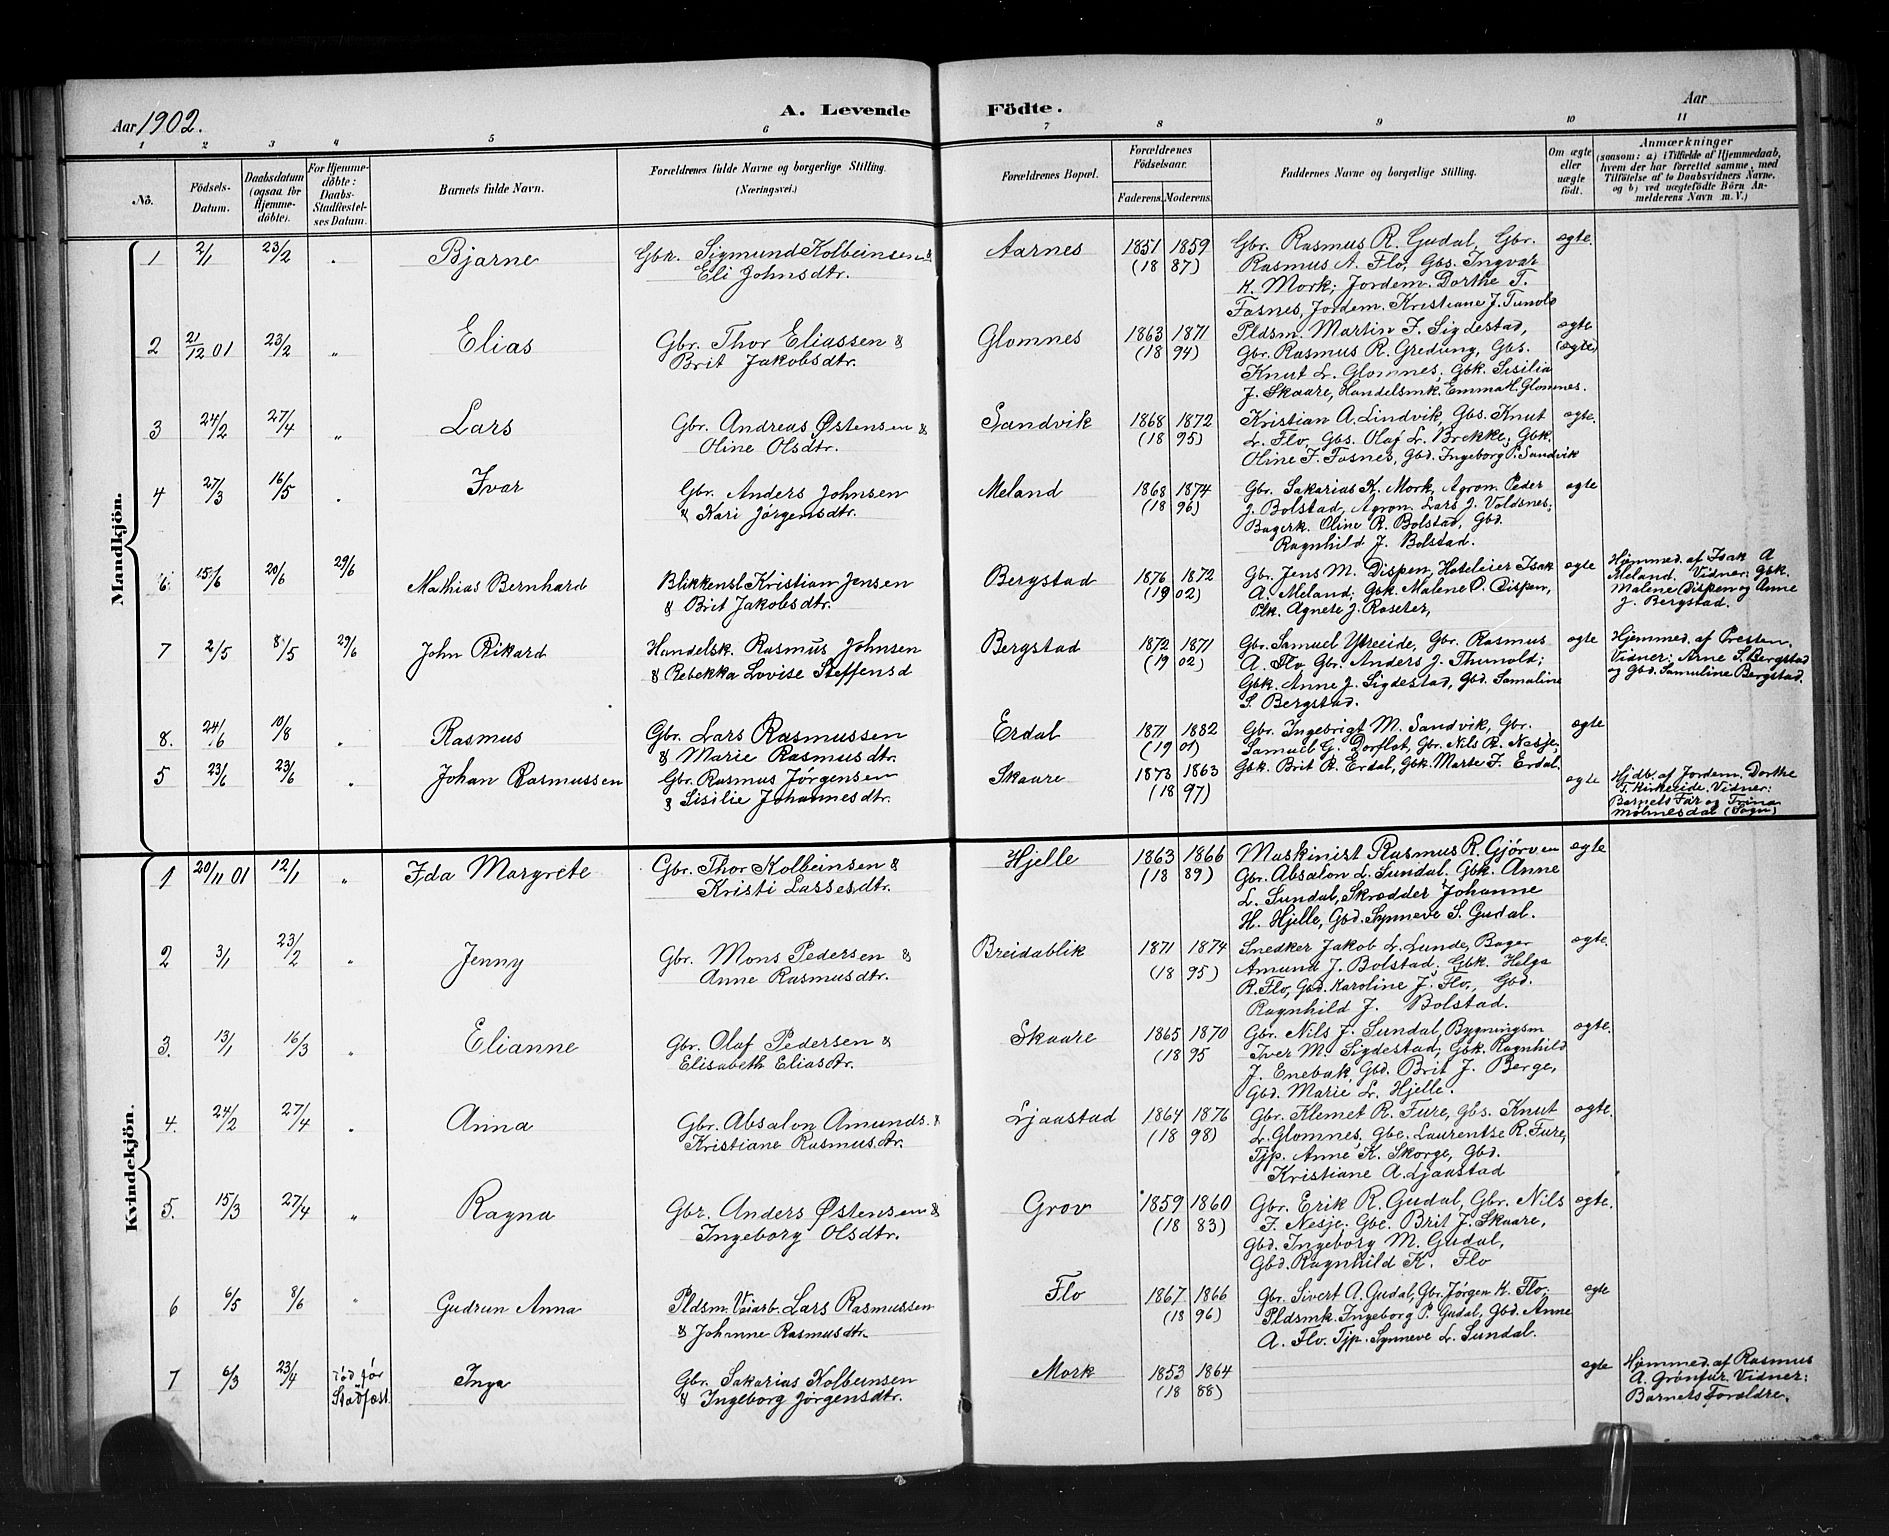 Aar 1902.
A. Levende Födte.
Aar
1 2 3 4 5 6 7 8 9 10 11
No.
Födsels-Datum.
Daabsdatum (ogsaa for Hjemmedöbte).
For Hjemmedöbte: Daabs Stadfæstelses Datum.
Barnets fulde Navn.
Forældrenes fulde Navne og borgerlige Stilling. (Næringsvei.)
Forældrenes Bopæl.
Forældrenes Födselsaar.
Faderens. Moderens.
Faddernes Navne og borgerlige Stilling.
Om ægte eller uægte født.
Anmærkninger
(saasom: a) i Tilfælde af Hjemmedaab, hvem der har forrettet samme, med Tilføielse af to Daabsvidners Navne, og b) ved uægtefödte Börn Anmelderens Navn m. V.)
Mandkjön.
1 2/1 23/2 " Bjarne Gbr. Sigmund Kolbeinsen & Aarnes 1851 1859 Gbr. Rasmus R. Gudal, Gbr. ægte.
Eli Johnsdtr. (18 87) Rasmus A. Flo, Gbs. Ingvar
K. Mork; Jordem. Dorthe T.
Fosnes, Jordem. Kristiane J. Tunold
2 21/12 01 23/2 " Elias Gbr. Thor Eliassen & Glomnes 1863 1871 Pldsm. Martin J. Sigdestad, ægte
Brit Jakobsdtr. (18 94) Gbr. Rasmus R. Gredung, Gbs. (ægte)
Knut L. Glomnes; Gbk. Sisilia
J. Skaare, Handelsmk. Emma H. Glomnes.
3 24/2 27/4 " Lars Gbr. Andreas Østensen & Sandvik 1868 1872 Kristian A. Lindvik, Gbs. Knut ægte.
Oline Olsdtr. (18 95) L. Flo, Gbs. Olaf L. Brekke; Gbk.
Oline F. Fosnes, Gbd. Ingeborg P. Sandvik
4 27/3 16/5 " Ivar Gbr. Anders Johnsen Meland 1868 1874 Gbr. Sakarias K. Mork, Agron. Peder ægte
& Kari Jørgensdtr. (18 96) J. Bolstad, Agron. Lars J. Valdsnes;
Bagerk. Oline R. Bolstad, Gbd.
Ragnhild J. Bolstad.
6. 15/6 20/6 29/6 Mathias Bernhard Blikkensl. Kristian Jensen Bergstad 1876 1872 Gbr. Jens M. Dispen, Hoteleier Isak ægte Hjemmed. af Isak A
& Brit Jakobsdtr. (19 02) A. Meland; Gbk. Malene O. Dispen, Meland. Vidner: Gbk.
Plk. Agnete J. Roseter, Malene Dispen og Anne
J. Bergstad.
7 2/5 8/5 29/6 John Rikard Handelsk. Rasmus Johnsen Bergstad 1872 1871 Gbr. Samuel Ytreeide, Gbr. Rasmus ægte Hjemmed. af Presten.
& Rebekka Lovise Steffensd (19 02) A. Flo Gbr. Anders J. Thunold; Vidner: Arne S. Bergstad
Gbk. Anne J. Sigdestad, Gbd. Samuline og Gbd. Samuline Bergstad.
S. Bergstad.
8. 24/6 10/8 " Rasmus Gbr. Lars Rasmussen Erdal 1871 1882 Gbr. Ingebrigt M. Sandvik, Gbr. ægte
& Marie Rasmusdtr. (19 01) Samuel G. Dorflot, Gbr. Nils R. Nesje;
Gbk. Brit R. Erdal, Gbk. Marte F. Erdal.
5 23/6 23/6 " Johan Rasmussen Gbr. Rasmus Jørgensen Skaare 1873 1863 ægte Hjdb. af Jordem. Dorthe
& Sisilie Johannesdtr. (18 97) T. Kirkeeide. Vidner:
Barnets Far og Trina
Mølmesdal (Sogn)
Kvindekjön.
1 20/11 01 12/1 " Ida Margrete Gbr. Thor Kolbeinsen & Hjelle 1863 1866 Maskinist Rasmus R. Gjørven ægte
Kristi Lassesdtr. (18 89) Gbr. Absalon L. Sundal; Gbk. Anne
L. Sundal, Skrædder Johanne
H. Hjelle, Gbd. Synneve S. Gudal.
2 3/1 23/2 " Jenny Gbr. Mons Pedersen & Breidablik 1871 1874 Snedker Jakob L. Lunde, Bager ægte.
Anne Rasmusdtr. (18 95) Amund J. Bolstad, Gbk. Helga
R. Flo, Gbd. Karoline J. Flo, Gbd.
Ragnhild J. Bolstad.
3. 13/1 16/3 " Elianne Gbr. Olaf Pedersen & Skaare 1865 1870 Gbr. Nils J. Sundal, Bygningsm ægte.
Elisabeth Eliasdtr. (18 95 Iver M. Sigdestad; Gbk. Ragnhild
J. Enebak, Gbd. Brit J. Berge,
Gbd. Marie L. Hjelle.
4. 24/2 27/4 " Anna Gbr. Absalon Amunds. & Ljaastad 1864 1876 Gbr. Klemet R. Fure, Gbs. Knut ægte.
Kristiane Rasmusdtr. (18 98) L. Glomnes, Gbe. Laurentse R. Fure,
Tjp. Anne K. Skorge, Gbd.
Kristiane A. Ljaastad
5. 15/3 27/4 " Ragna Gbr. Anders Østensen & Grov 1859 1860 Gbr. Erik R. Gudal, Gbr. Nils ægte.
Ingeborg Olsdtr. (18 83) J. Nesje. Gbe. Brit J. Skaare,
Gbd. Ingeborg M. Gudal,
Gbd. Ragnhild K. Flo
6 6/5 8/6 " Gudrun Anna Pldsm. Veiarb. Lars Rasmussen Flo 1867 1866 Gbr. Sivert A. Gudal, Gbr. Jørgen K. Flo; ægte
& Johanne Rasmusdtr. (18 96) Pldsmk. Ingeborg P. Gudal, Gbd. Anne
A. Flo. Tjp. Synneve L. Sundal.
7 6/3 23/4 død før Stadfæst. Inga Gbr. Sakarias Kolbeinsen Mork 1853 1864 ægte Hjemmed. af Rasmus
& Ingeborg Jørgensdtr. (18 88) A. Grønfur. Vidner:
Barnets Forældre.